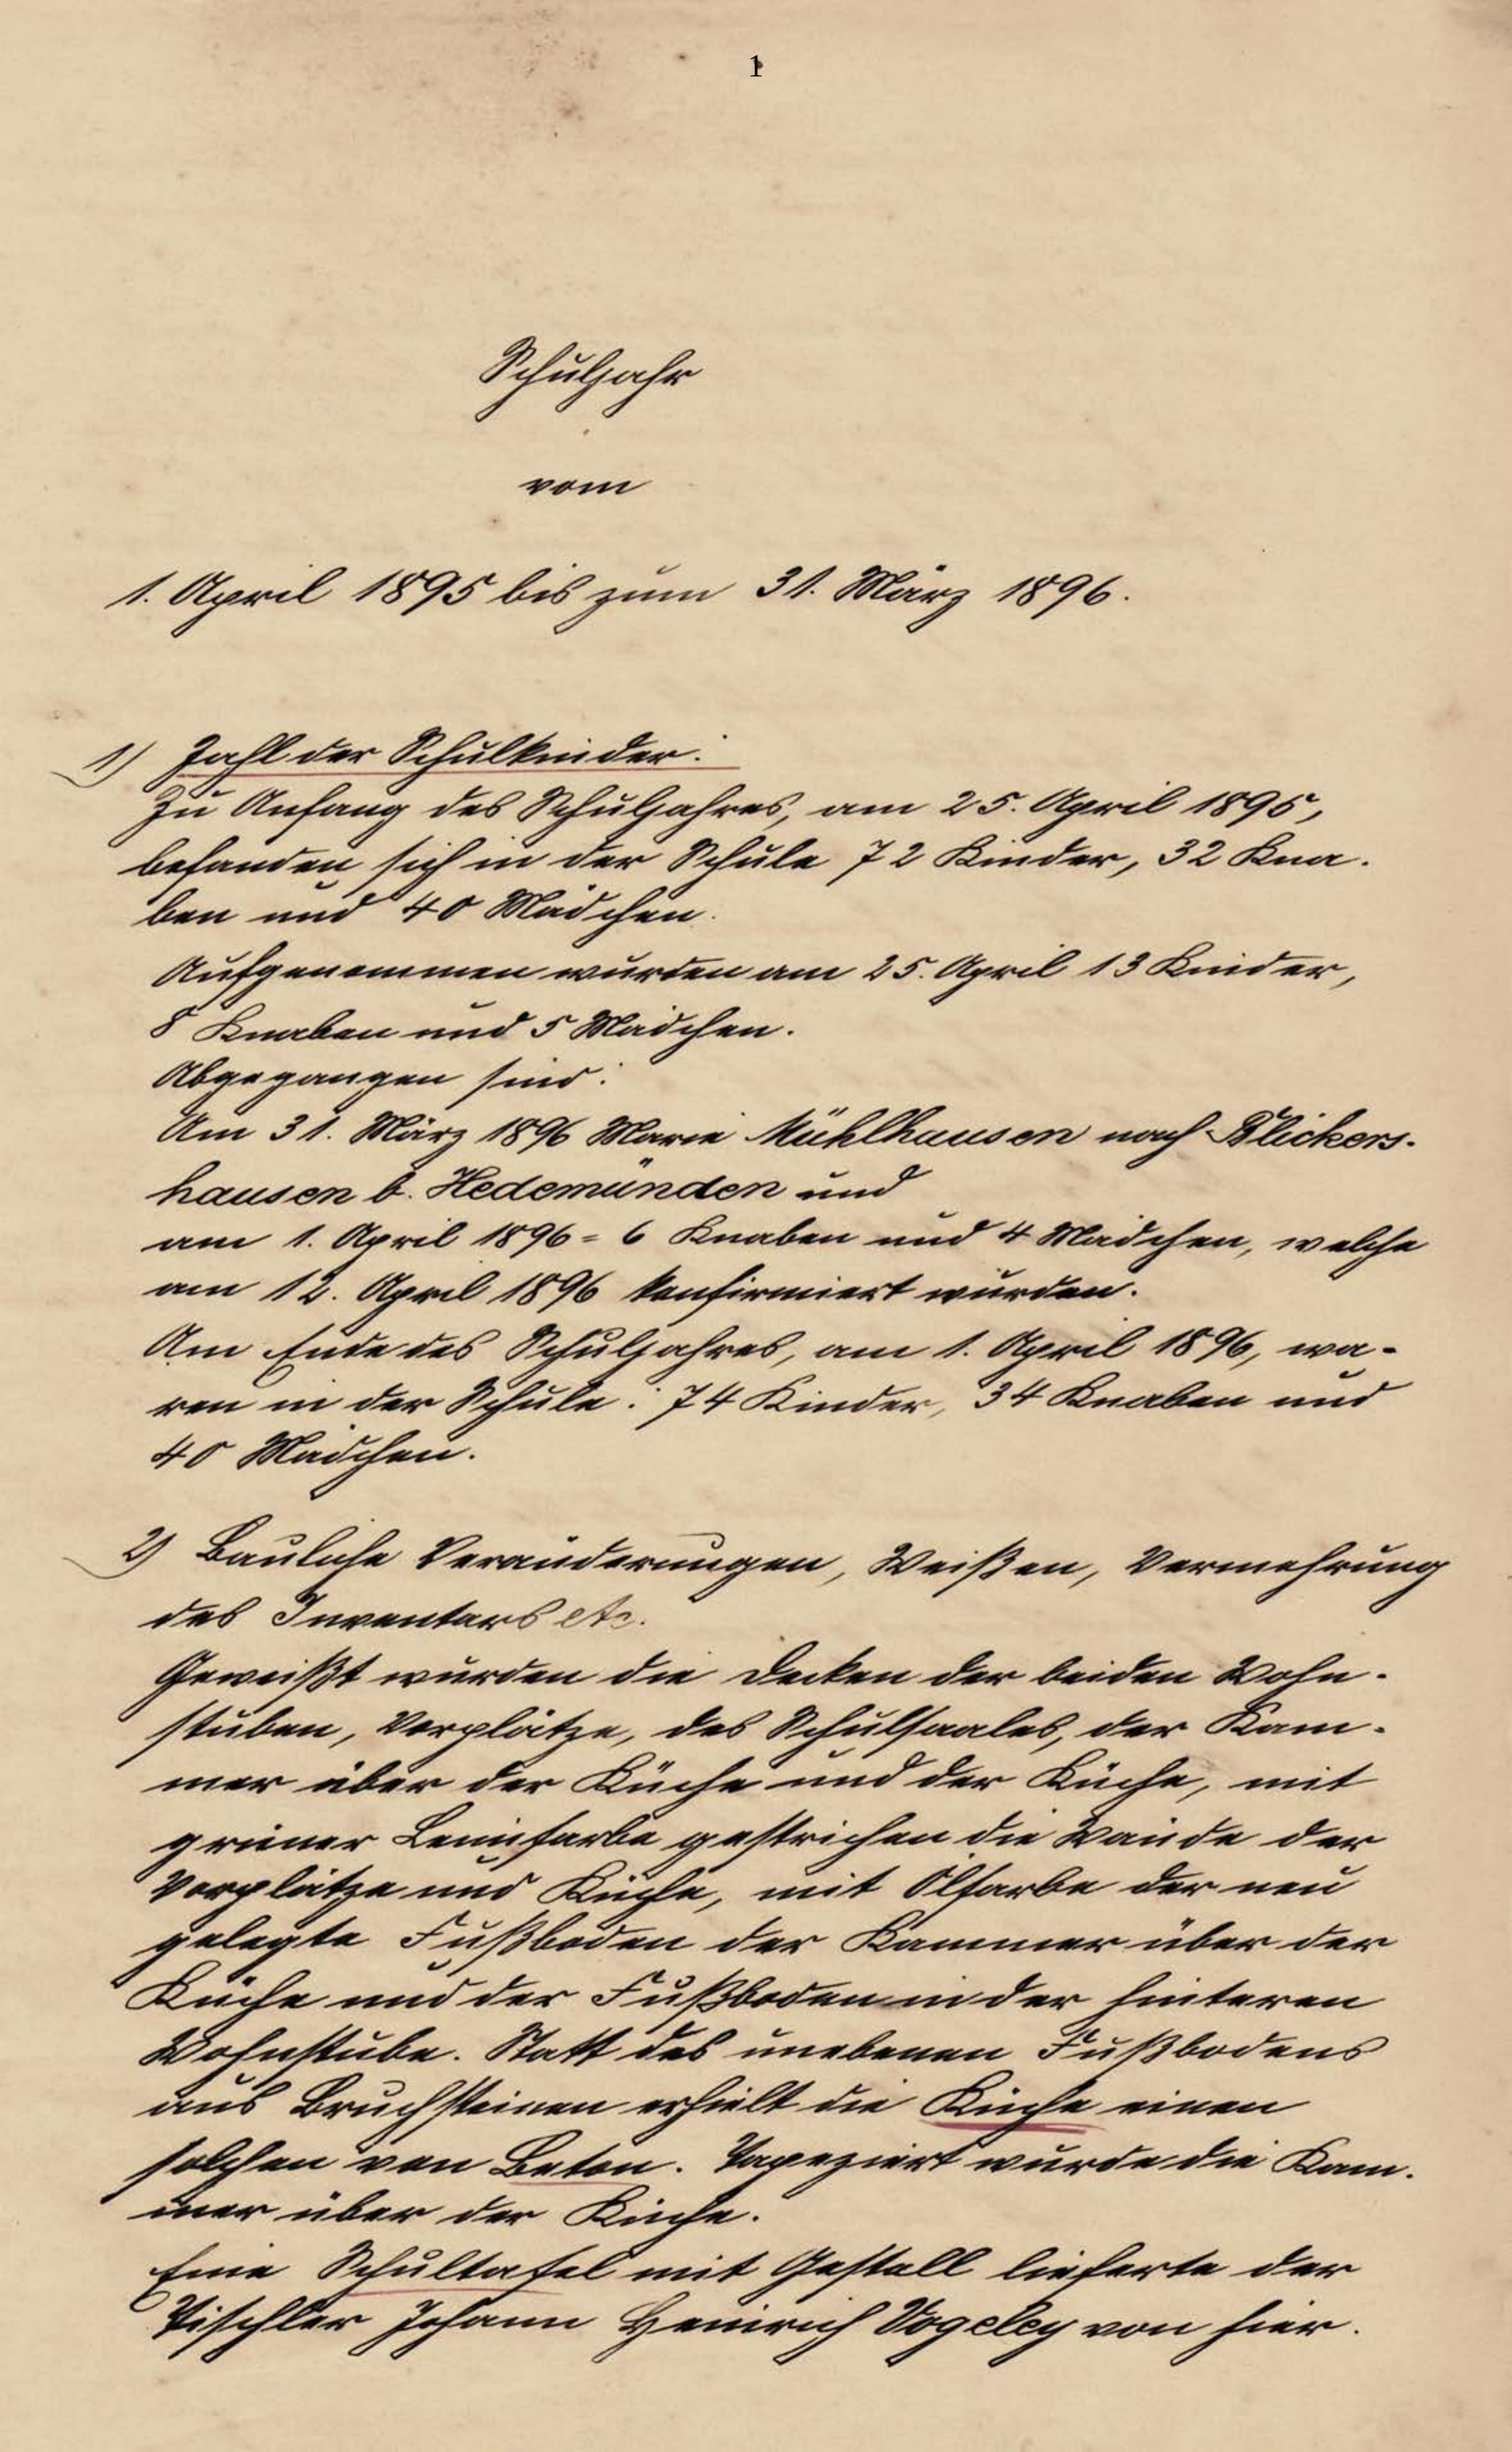 1
Schuljahr
vom
1. April 1895 bis zum 31. März 1896.
1) Zahl der Schulkinder:
Zu Anfang des Schuljahres, am 25. April 1895,
befanden sich in der Schule 72 Kinder, 32 Kna-
ben und 40 Mädchen.
Aufgenommen wurden am 25. April 13 Kinder,
8 Knaben und 5 Mädchen.
Abgegangen sind:
Am 31. März 1896 Marie Mühlhausen nach Blickers-
hausen b. Hedemünden und
am 1. April 1896 = 6 Knaben und 4 Mädchen, welche
am 12. April 1896 konfirmiert wurden.
Am Ende des Schuljahres, am 1. April 1896, wa-
ren in der Schule: 74 Kinder, 34 Knaben und
40 Mädchen.
2) Bauliche Veränderungen, Weißen, Vermehrung
des Inventars etc.
Geweißt wurden die Decken der beiden Wohn-
stuben, Vorplätze, des Schulsaales, der Kam-
mer über der Küche und der Küche, mit
grüner Leimfarbe gestrichen die Wände der
Vorplätze und Küche, mit Ölfarbe der neu
gelegte Fußboden der Kammer über der
Küche und der Fußboden in der hinteren
Wohnstube. Statt des unebenen Fußbodens
aus Bruchsteinen erhielt die Küche einen
solchen von Beton. Tapeziert wurde die Kam-
mer über der Küche.
Eine Schultafel mit Gestell lieferte der
Tischler Johann Heinrich Vogeley von hier.